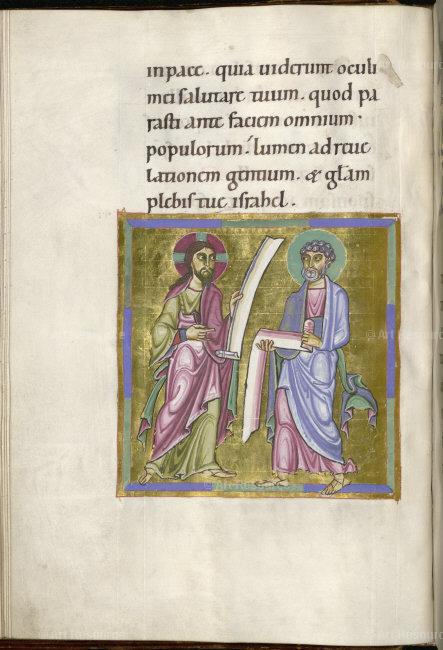 in pace. quia uiderunt oculi
mei salutare tuum. quod pa
rasti ante faciem omnium
populorum. lumen ad reue
lationem gentium. & glam
plebis tue israhel.
© Art Resource